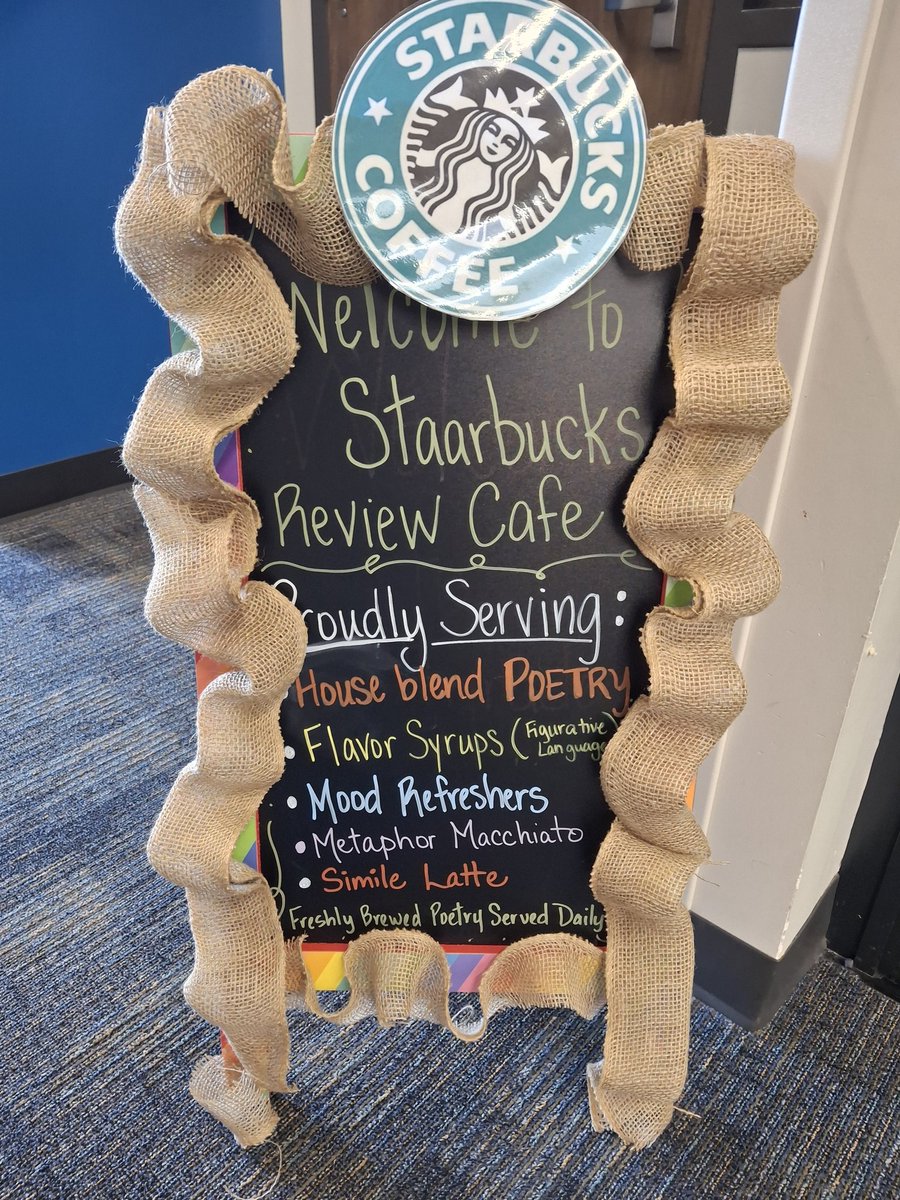 STARBUCKS
COFFEE
Welcome to
Staarbucks
Review Cafe
Proudly Serving:
House blend POETRY
• Flavor Syrups (Figurative
Language)
• Mood Refreshers
• Metaphor Macchiato
• Simile Latte
Freshly Brewed Poetry Served Daily